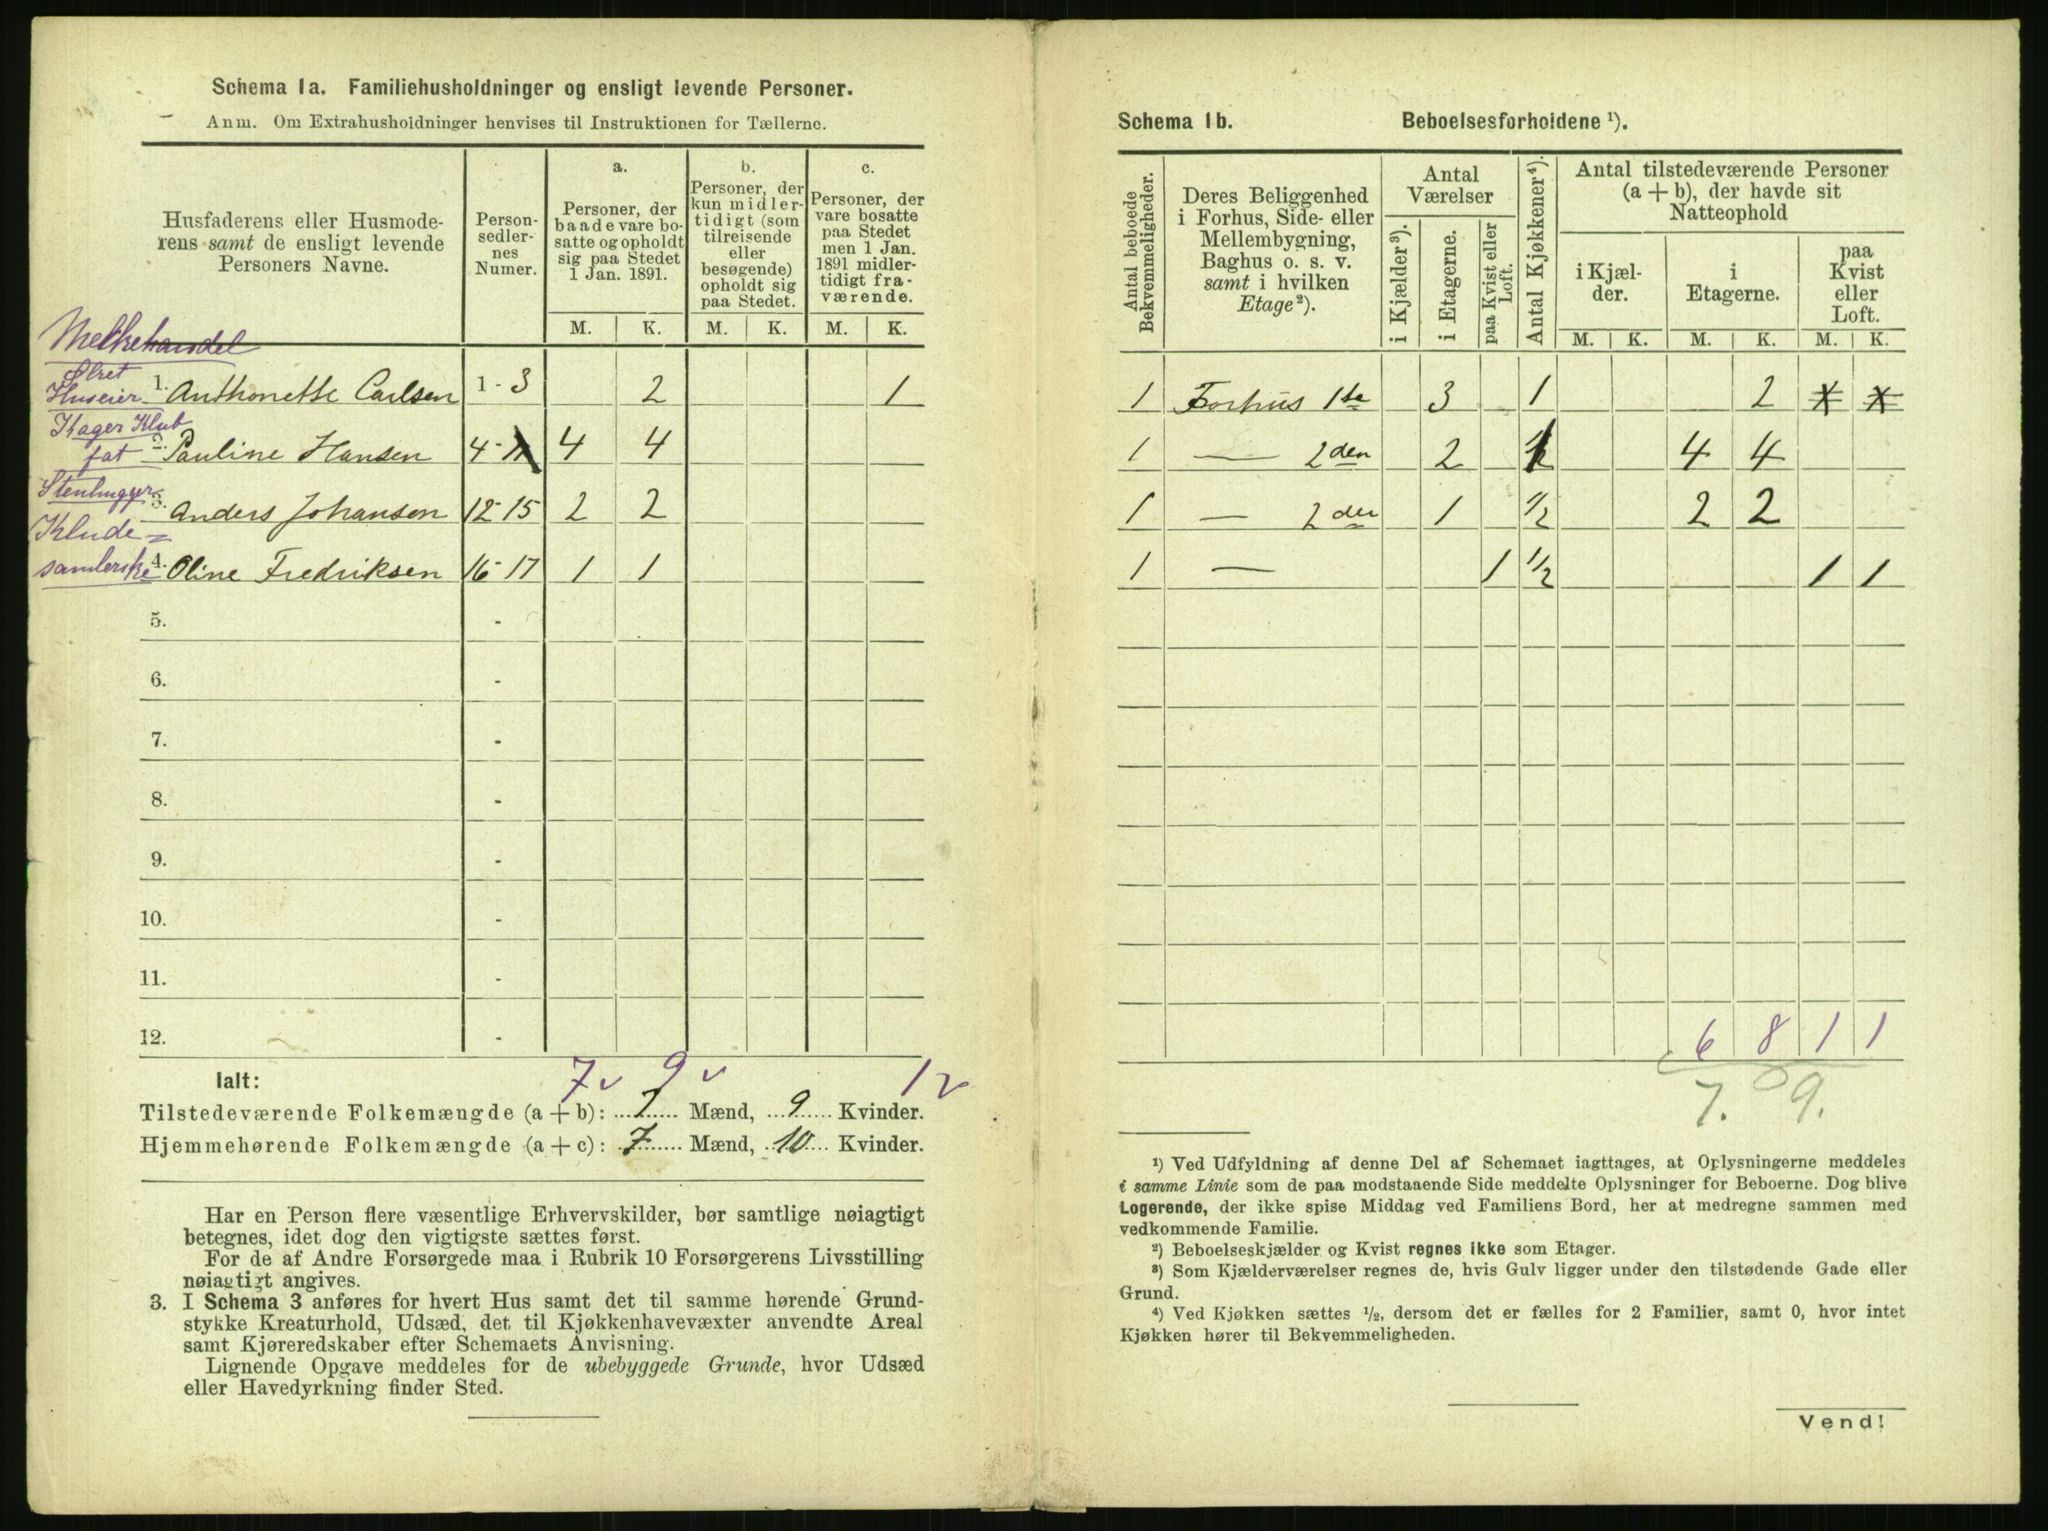 Schema 1a. Familiehusholdninger og ensligt levende Personer.
Anm. Om Extrahusholdninger henvises til Instruktionen for Tællerne.
Husfaderens eller Husmode-
rens samt de ensligt levende
Personers Navne.
Person-
sedler-
nes
Numer.
a.
Personer, der
baade vare bo-
satte og opholdt
sig paa Stedet
1 Jan. 1891.
b.
Personer, der
kun midler-
tidigt (som
tilreisende
eller
besøgende)
opholdt sig
paa Stedet.
c.
Personer, der
vare bosatte
paa Stedet
men 1 Jan.
1891 midler-
tidigt fra-
værende.
M. K. M. K. M. K.
Melkehandel
Huseier
1. Anthonette Carlsen 1-3 2 1
Kager Klub
fat
2. Pauline Hansen 4-11 4 4
Stenhugger
3. Anders Johansen 12-15 2 2
Klude-
samlerske
4. Oline Fredriksen 16-17 1 1
5. -
6. -
7. -
8. -
9. -
10. -
11. -
12. -
Ialt:
7 v 9 v 1 v
Tilstedeværende Folkemængde (a + b): 7 Mænd, 9 Kvinder.
Hjemmehørende Folkemængde (a + c): 7 Mænd, 10 Kvinder.
Har en Person flere væsentlige Erhvervskilder, bør samtlige nøiagtigt
betegnes, idet dog den vigtigste sættes først.
For de af Andre Forsørgede maa i Rubrik 10 Forsørgerens Livsstilling
nøiagtigt angives.
3. I Schema 3 anføres for hvert Hus samt det til samme hørende Grund-
stykke Kreaturhold, Udsæd, det til Kjøkkenhavevæxter anvendte Areal
samt Kjøreredskaber efter Schemaets Anvisning.
Lignende Opgave meddeles for de ubebyggede Grunde, hvor Udsæd
eller Havedyrkning finder Sted.
Schema 1b. Beboelsesforholdene ¹).
Antal beboede
Bekvemmeligheder.
Deres Beliggenhed
i Forhus, Side- eller
Mellembygning,
Baghus o. s. v.
samt i hvilken
Etage ²).
Antal
Værelser
i Kjælder ³).
i Etagerne.
paa Kvist eller
Loft.
Antal Kjøkkener ⁴).
Antal tilstedeværende Personer
(a + b), der havde sit
Natteophold
i Kjæl-
der.
i
Etagerne.
paa
Kvist
eller
Loft.
M. K. M. K. M. K.
1 Forhus 1ste 3 1 2 x x
1 — 2den 2 1/2 4 4
1 — 2den 1 1/2 2 2
1 — 1 1/2 1 1
6 8 1 1
7. 9.
¹) Ved Udfyldning af denne Del af Schemaet iagttages, at Oplysningerne meddeles
i samme Linie som de paa modstaaende Side meddelte Oplysninger for Beboerne. Dog blive
Logerende, der ikke spise Middag ved Familiens Bord, her at medregne sammen med
vedkommende Familie.
²) Beboelseskjælder og Kvist regnes ikke som Etager.
³) Som Kjælderværelser regnes de, hvis Gulv ligger under den tilstødende Gade eller
Grund.
⁴) Ved Kjøkken sættes ½, dersom det er fælles for 2 Familier, samt 0, hvor intet
Kjøkken hører til Bekvemmeligheden.
Vend!